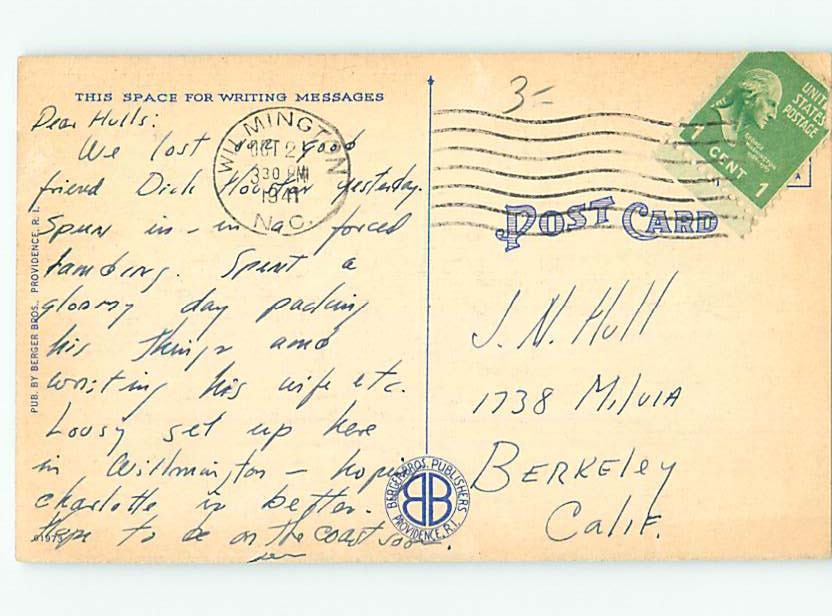 THIS SPACE FOR WRITING MESSAGES
Dear Hulls:
We lost our good
friend Dick yesterday.
Spun in - in a forced
landing. Spent a
gloomy day packing
his things and
writing his wife etc.
Lousy set up here
in Willmington - hopin
charlotte is better.
Hope to be on the coast soon.
61973
PUB. BY BERGER BROS., PROVIDENCE, R. I.
WILMINGTON
OCT 2
3 30 PM
1941
N.C.
BERGER BROS. PUBLISHERS
BB
PROVIDENCE, R.I.
3-
UNITED
STATES
POSTAGE
1 CENT 1
POST CARD
J. N. Hull
1738 MilviA
BERKEley
CaliF.